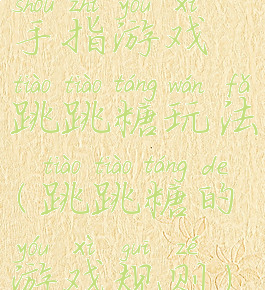 shǒu zhǐ yóu xì
手指游戏
tiào tiào táng wán fǎ
跳跳糖玩法
tiào tiào táng de
(跳跳糖的
yóu xì guī zé
游戏规则)